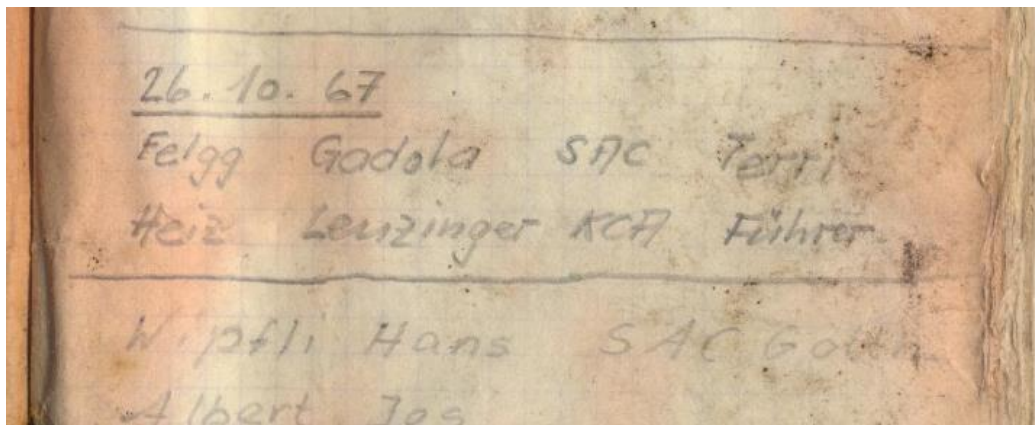 26.10.67
Felgg Gadola SAC Terri
Heiz Leuzinger KCA Führer
Wipfli Hans SAC Gotth.
Albert Jos